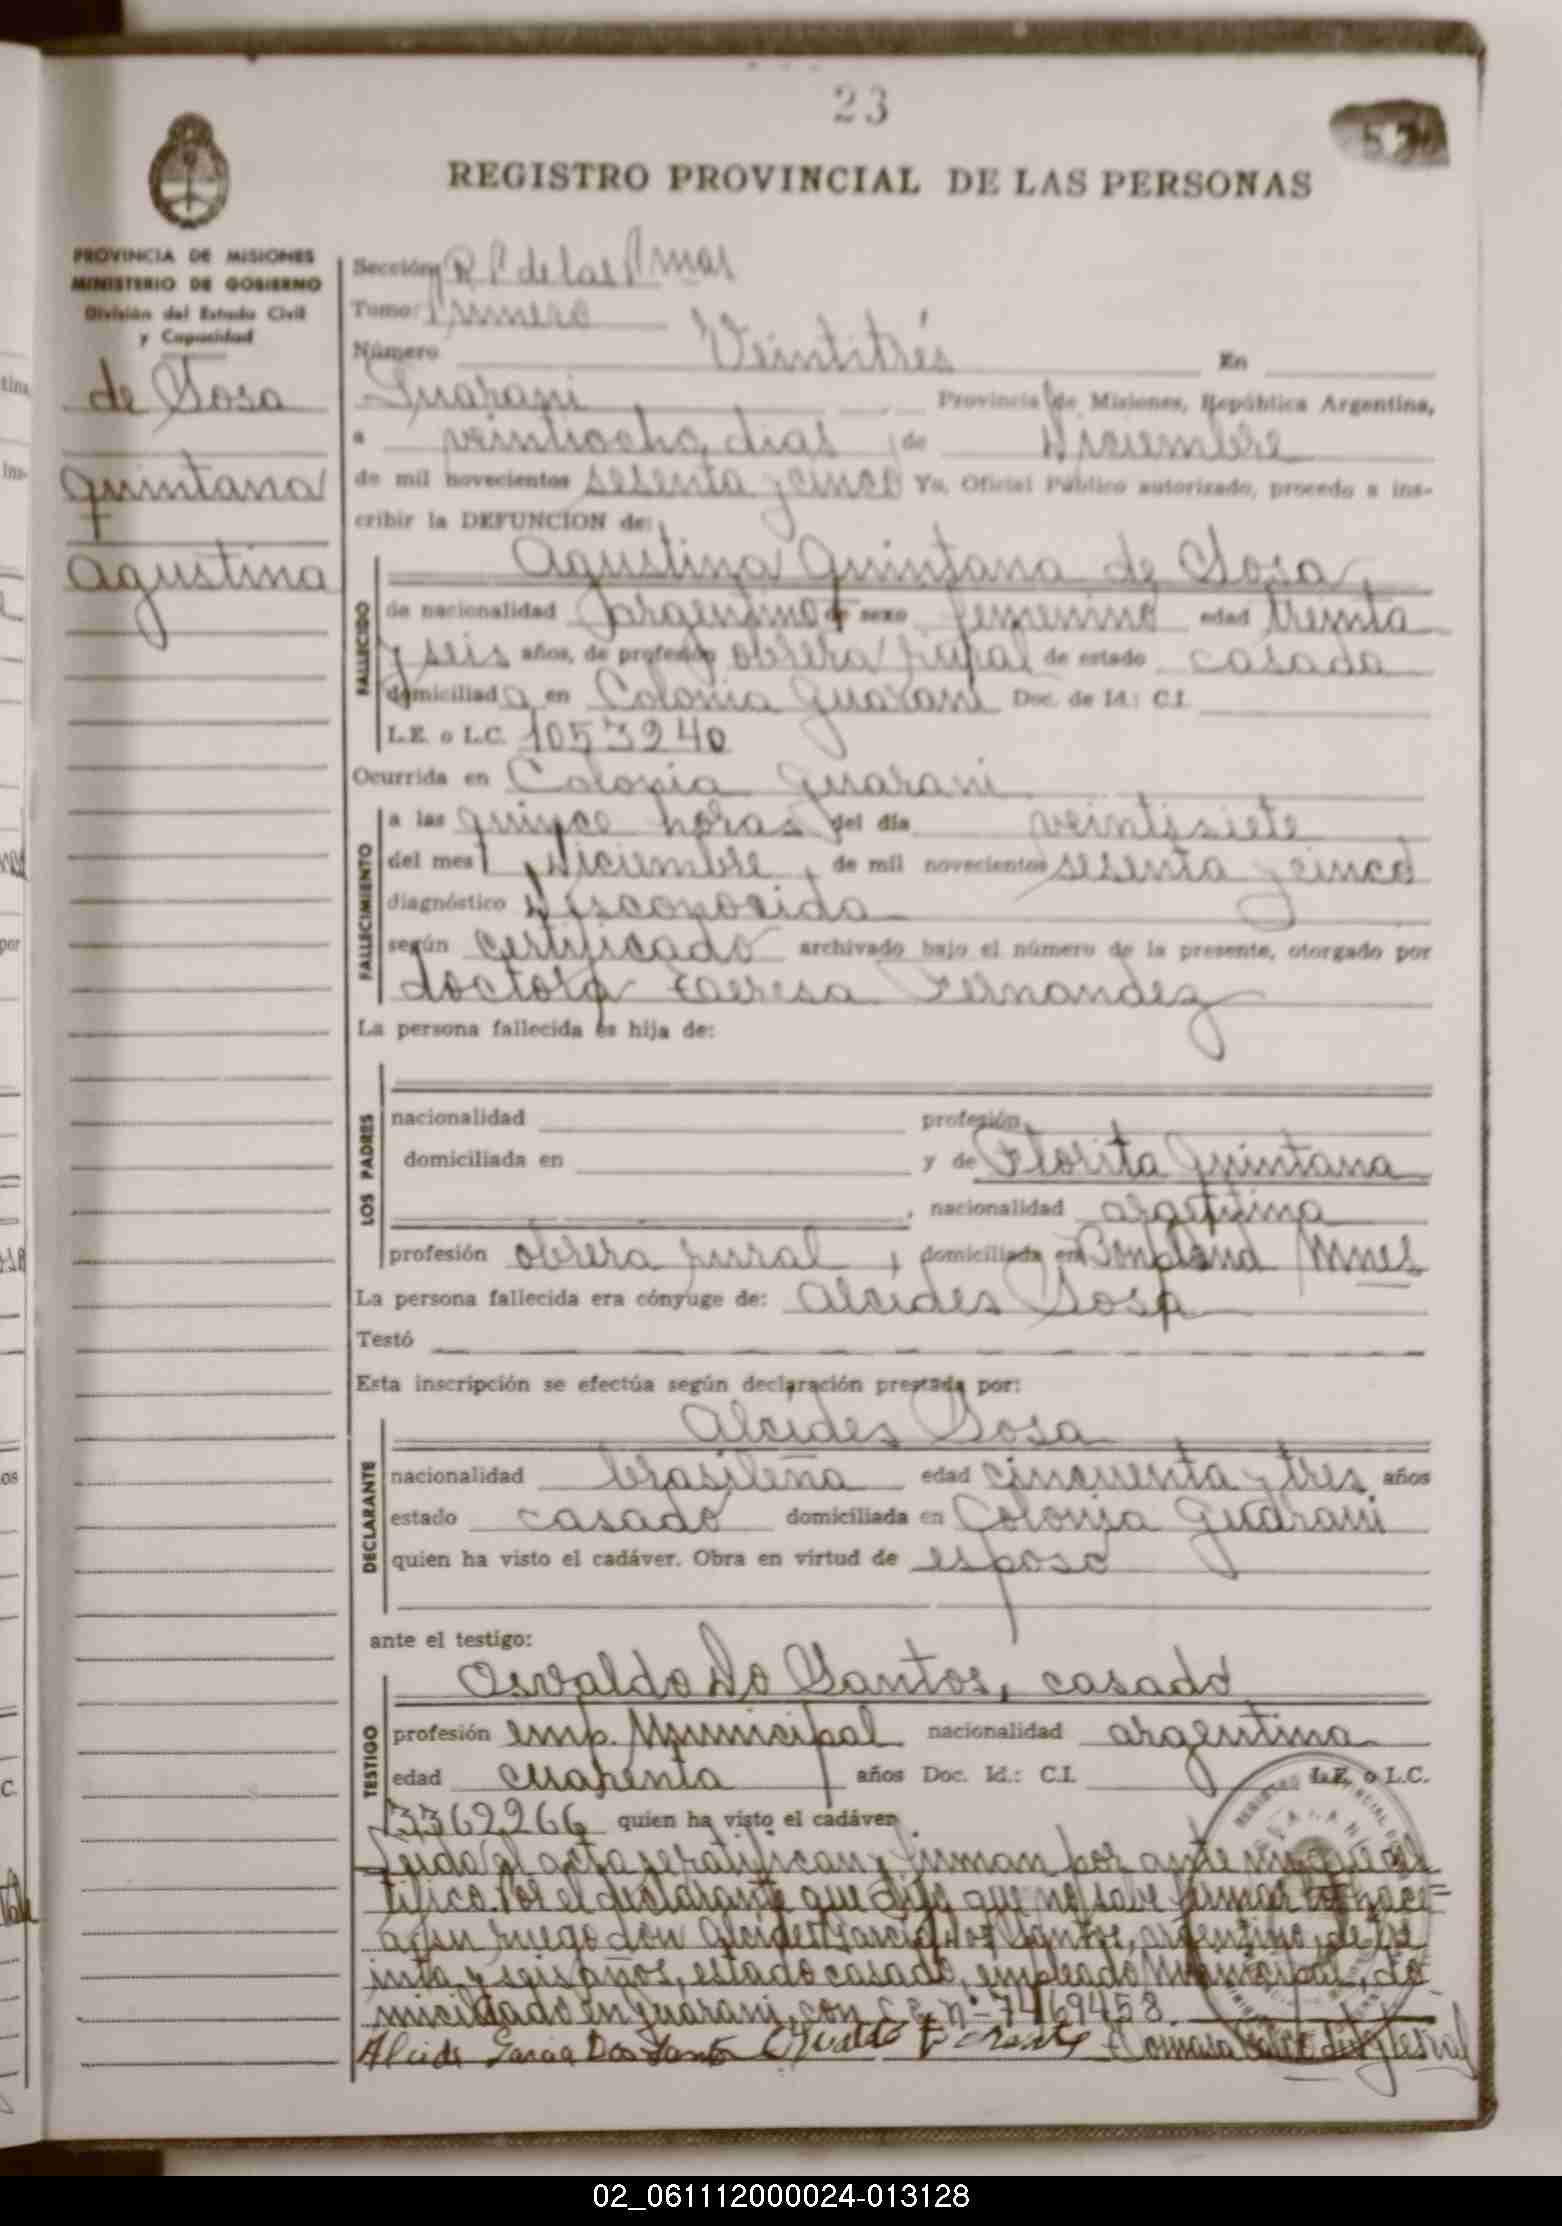 23
REGISTRO PROVINCIAL DE LAS PERSONAS
PROVINCIA DE MISIONES
MINISTERIO DE GOBIERNO
División del Estado Civil
y Capacidad
de Sosa
Quintana
Agustina
Sección R P de las Pnas
Tomo: Primero
Número Veintitrés En
Guarani Provincia de Misiones, República Argentina,
a veintiocho dias de Diciembre
de mil novecientos sesenta y cinco Yo, Oficial Público autorizado, procedo a ins-
cribir la DEFUNCION de:
FALLECIDO
Agustina Quintana de Sosa,
de nacionalidad argentina de sexo femenino edad treinta
y seis años, de profesión obrera rural de estado casada
domiciliada en Colonia Guarani Doc. de Id.: C.I.
L.E. o L.C. 1053240
Ocurrida en Colonia Guarani
FALLECIMIENTO
a las quince horas del día veintisiete
del mes Diciembre, de mil novecientos sesenta y cinco
diagnóstico Desconocida
según certificado archivado bajo el número de la presente, otorgado por
doctora Teresa Fernandez
La persona fallecida es hija de:
LOS PADRES
nacionalidad profesión
domiciliada en y de Florita Quintana
, nacionalidad argentina
profesión obrera rural, domiciliada en Mnes
La persona fallecida era cónyuge de: Alcides Sosa
Testó
Esta inscripción se efectúa según declaración prestada por:
DECLARANTE
Alcides Sosa
nacionalidad brasileña edad cincuenta y tres años
estado casado domiciliada en Colonia Guarani
quien ha visto el cadáver. Obra en virtud de esposo
ante el testigo:
TESTIGO
Osvaldo Do Santos, casado
profesión emp. Municipal nacionalidad argentina
edad cuarenta años Doc. Id.: C.I. L.E. o L.C.
3362266 quien ha visto el cadáver
Leida el acta se ratifican y firman por ante mi que cer
tifico. Por el declarante que dijo que no sabe firmar lo hace=
a su ruego don Alcides Garcia Dos Santos, argentino, de tre
inta y seis años, estado casado, empleado Municipal, do
miciliado en Guarani, con n°- 7469458.
Alcides Garcia Dos Santos
02_061112000024-013128